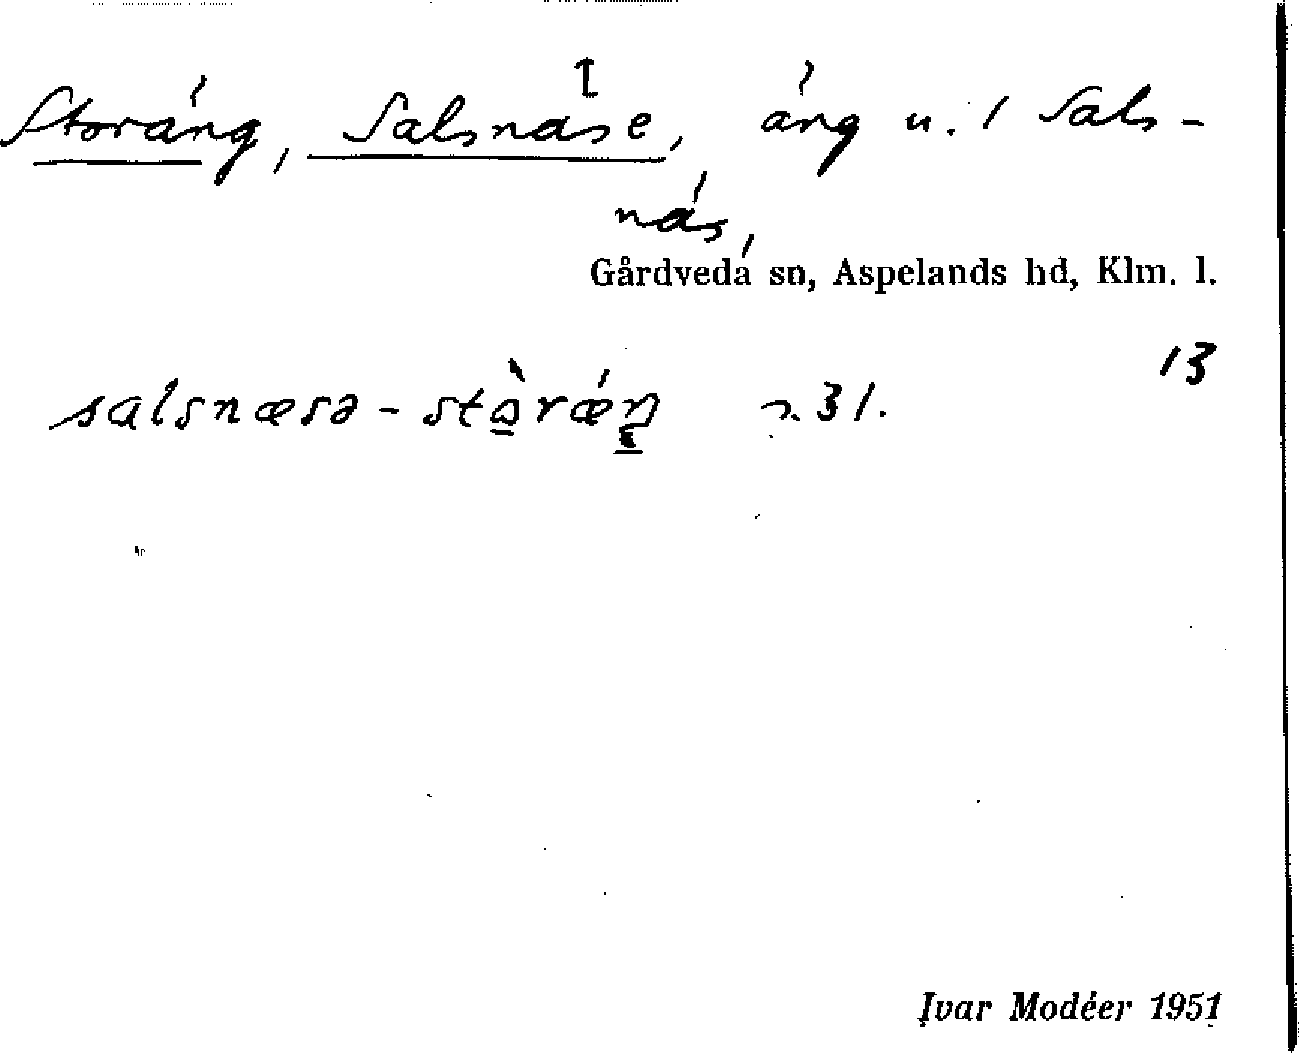 Storäng, Salsnäse, äng u. 1 Sals-
näs,
Gårdveda sn, Aspelands hd, Klm. l.
13
salsnæsə-stò̱rǽŋ 31.
Ivar Modéer 1951